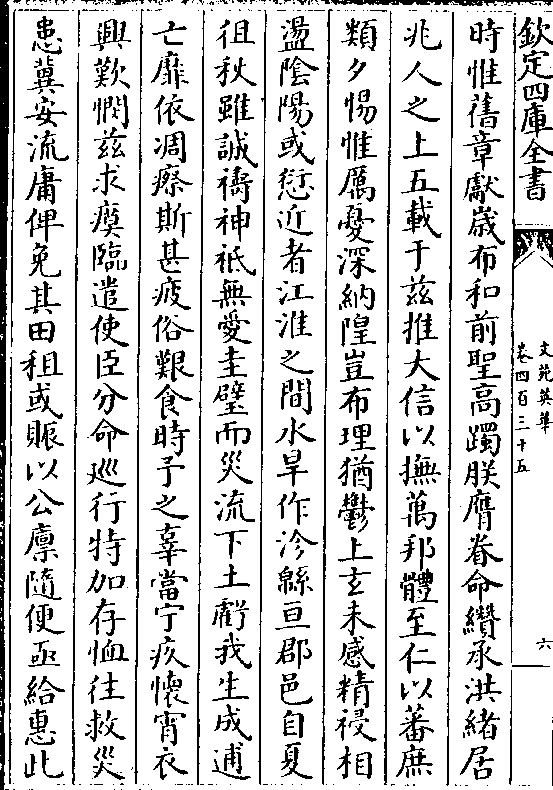 欽定四庫全書
文苑英華
卷四百三十五
六
時惟舊章獻歲布和前聖高躅朕膺眷命纘承洪緒居
兆人之上五載于茲推大信以撫萬邦體至仁以蕃庶
類夕惕惟厲憂深納隍豈布理猶鬱上玄未感精祲相
盪陰陽或愆近者江淮之間水旱作沴緜亘郡邑自夏
徂秋雖誠禱神祗無愛圭璧而災流下土虧我生成逋
亡靡依凋瘵斯甚疲俗艱食時予之辜當宁疚懷宵衣
興歎憫茲求瘼臨遣使臣分命廵行特加存恤往救災
患冀安流庸俾免其田租或賑以公廪隨便亟給惠此